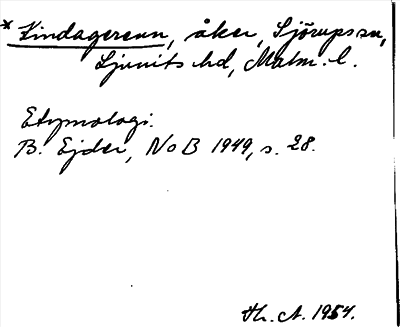 * Lindagerenn, åker, Sjörups sn,
Ljunits hd, Malm. l.
Etymologi.
B. Ejder, NoB 1949, s. 28.
Th. A. 1954.